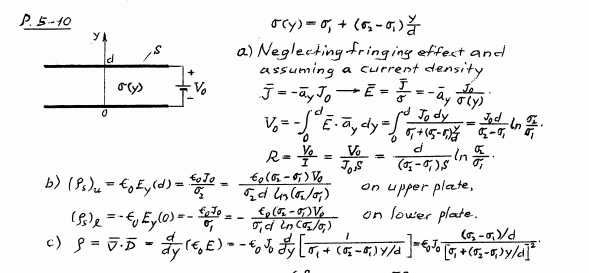 P. 5-10
σ(y) = σ₁ + (σ₂-σ₁) y/d
y d S
σ(y) + V₀ -
0
a) Neglecting fringing effect and
assuming a current density
J̄ = -āy J₀ → Ē = J̄/σ = -āy J₀/σ(y).
V₀ = -∫₀ᵈ Ē·āy dy = ∫₀ᵈ J₀ dy/(σ₁+(σ₂-σ₁)y/d) = J₀d/(σ₂-σ₁) ln σ₂/σ₁.
R = V₀/I = V₀/(J₀S) = d/((σ₂-σ₁)S) ln σ₂/σ₁.
b) (ρs)u = ϵ₀Ey(d) = ϵ₀J₀/σ₂ = ϵ₀(σ₂-σ₁)V₀/(σ₂d ln(σ₂/σ₁)) on upper plate,
(ρs)ℓ = -ϵ₀Ey(0) = -ϵ₀J₀/σ₁ = -ϵ₀(σ₂-σ₁)V₀/(σ₁d ln(σ₂/σ₁)) on lower plate.
c) ρ = ∇̄·D̄ = d/dy (ϵ₀E) = -ϵ₀J₀ d/dy [1/(σ₁+(σ₂-σ₁)y/d)] = ϵ₀J₀ (σ₂-σ₁)/d / [σ₁+(σ₂-σ₁)y/d]².